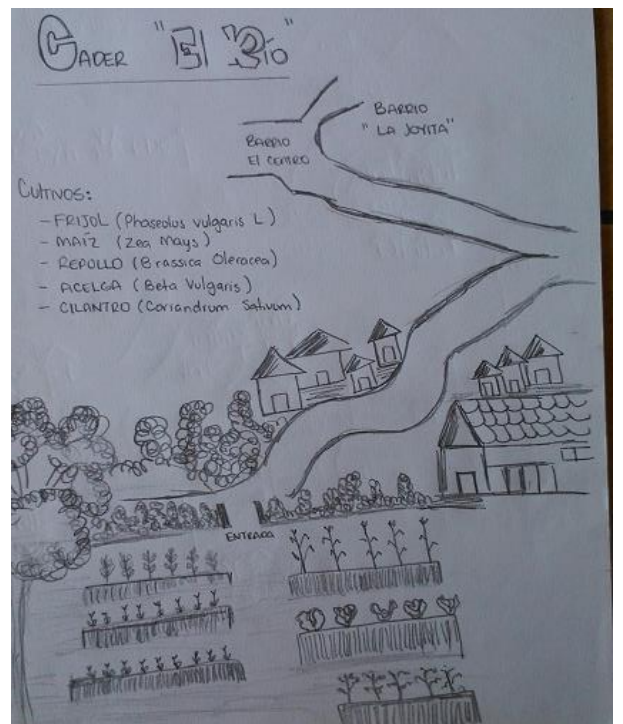 CADER "El Río"
BARRIO
"LA JOYITA"
BARRIO
El CENTRO
Cultivos:
- FRIJOL (Phaseolus vulgaris L)
- MAÍZ (Zea Mays)
- REPOLLO (Brassica Oleracea)
- ACELGA (Beta Vulgaris)
- CILANTRO (Coriandrum Sativum)
ENTRADA